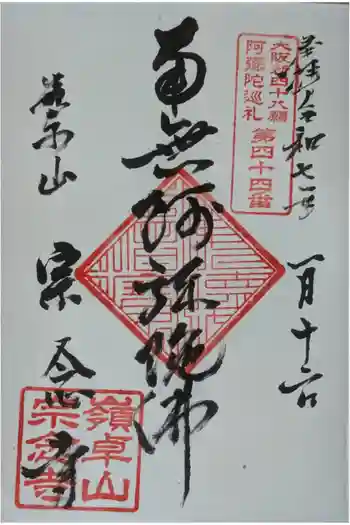 奉拝 令和七年
一月十六日
大阪新四十八願
阿弥陀巡礼
第四十四番
南無阿弥陀佛
宗念寺
嶺卓山
宗念寺